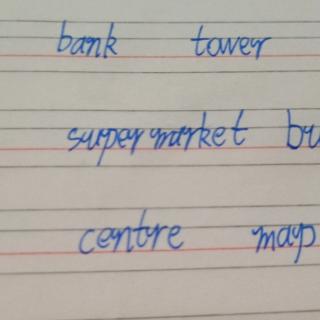 bank tower
supermarket bu
centre map